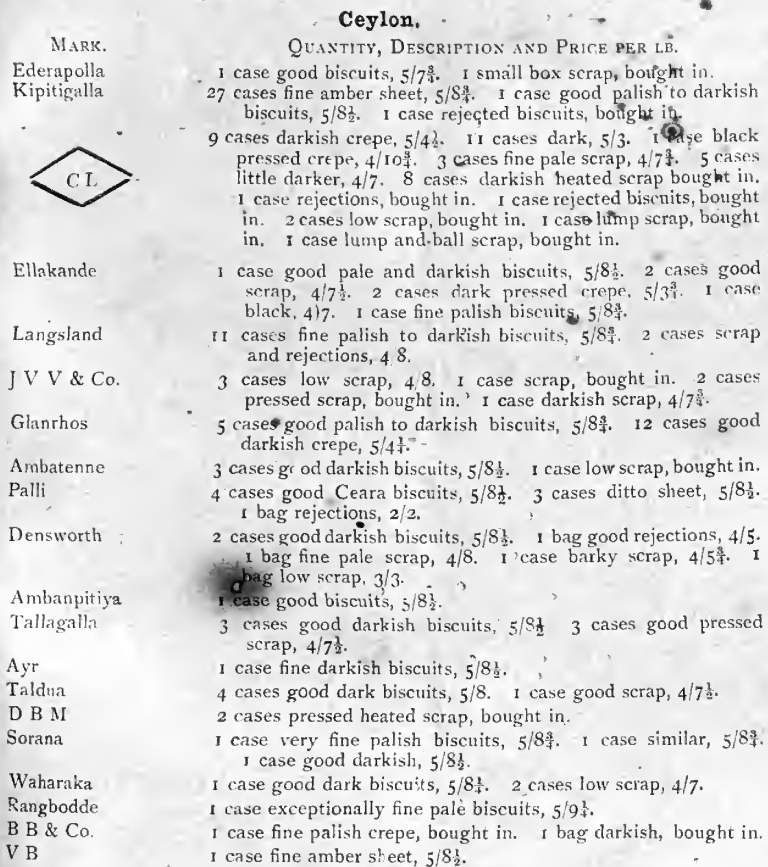 Ceylon.
MARK. QUANTITY, DESCRIPTION AND PRICE PER LB.
Ederapolla 1 case good biscuits, 5/7¾. 1 small box scrap, bought in.
Kipitigalla 27 cases fine amber sheet, 5/8¾. 1 case good palish to darkish
biscuits, 5/8½. 1 case rejected biscuits, bought in.
9 cases darkish crepe, 5/4½. 11 cases dark, 5/3. 1 case black
pressed crepe, 4/10¾. 3 cases fine pale scrap, 4/7¾. 5 cases
CL little darker, 4/7. 8 cases darkish heated scrap bought in.
1 case rejections, bought in. 1 case rejected biscuits, bought
in. 2 cases low scrap, bought in. 1 case lump scrap, bought
in. 1 case lump and ball scrap, bought in.
Ellakande 1 case good pale and darkish biscuits, 5/8½. 2 cases good
scrap, 4/7½. 2 cases dark pressed crepe, 5/3¾. 1 case
black, 4)7. 1 case fine palish biscuits, 5/8¾.
Langsland 11 cases fine palish to darkish biscuits, 5/8¾. 2 cases scrap
and rejections, 4 8.
J V V & Co. 3 cases low scrap, 4/8. 1 case scrap, bought in. 2 cases
pressed scrap, bought in. 1 case darkish scrap, 4/7¾.
Glanrhos 5 cases good palish to darkish biscuits, 5/8¾. 12 cases good
darkish crepe, 5/4½.
Ambatenne 3 cases go od darkish biscuits, 5/8½. 1 case low scrap, bought in.
Palli 4 cases good Ceara biscuits, 5/8½. 3 cases ditto sheet, 5/8½.
1 bag rejections, 2/2.
Densworth 2 cases good darkish biscuits, 5/8½. 1 bag good rejections, 4/5.
1 bag fine pale scrap, 4/8. 1 case barky scrap, 4/5¾. 1
bag low scrap, 3/3.
Ambanpitiya 1 case good biscuits, 5/8½.
Tallagalla 3 cases good darkish biscuits, 5/8½ 3 cases good pressed
scrap, 4/7½.
Ayr 1 case fine darkish biscuits, 5/8½.
Taldua 4 cases good dark biscuits, 5/8. 1 case good scrap, 4/7½.
D B M 2 cases pressed heated scrap, bought in.
Sorana 1 case very fine palish biscuits, 5/8¾. 1 case similar, 5/8¾.
1 case good darkish, 5/8½.
Waharaka 1 case good dark biscuits, 5/8¼. 2 cases low scrap, 4/7.
Rangbodde 1 case exceptionally fine pale biscuits, 5/9¼.
B B & Co. 1 case fine palish crepe, bought in. 1 bag darkish, bought in.
V B 1 case fine amber sheet, 5/8½.